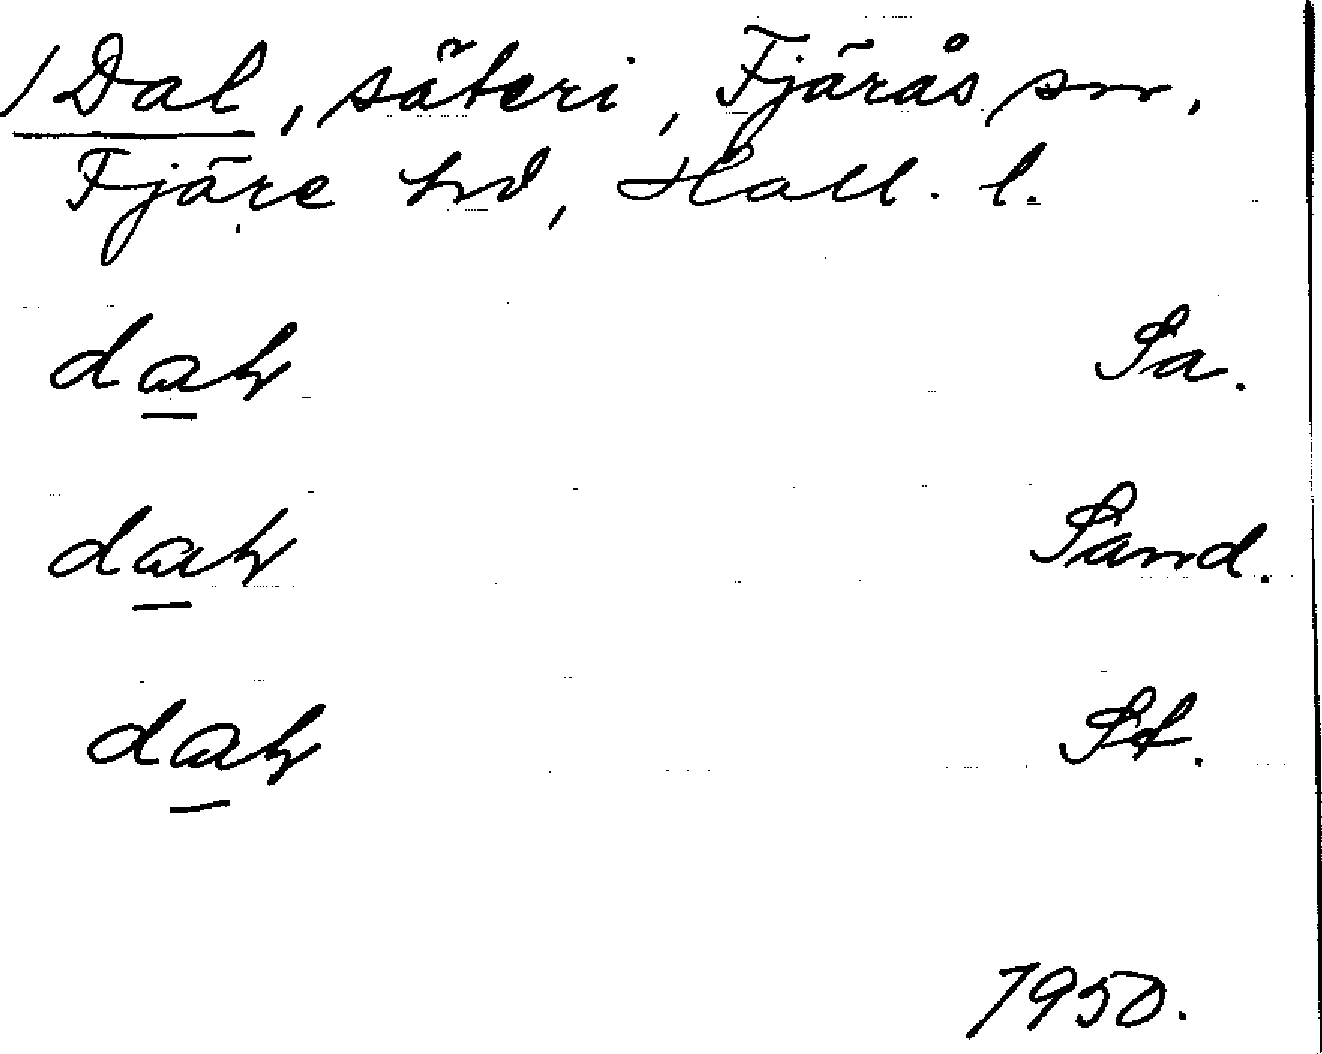 /Dal, säteri, Fjärås sn,
Fjäre hd, Hall. l.
Sa.
Sand.
St.
1950.